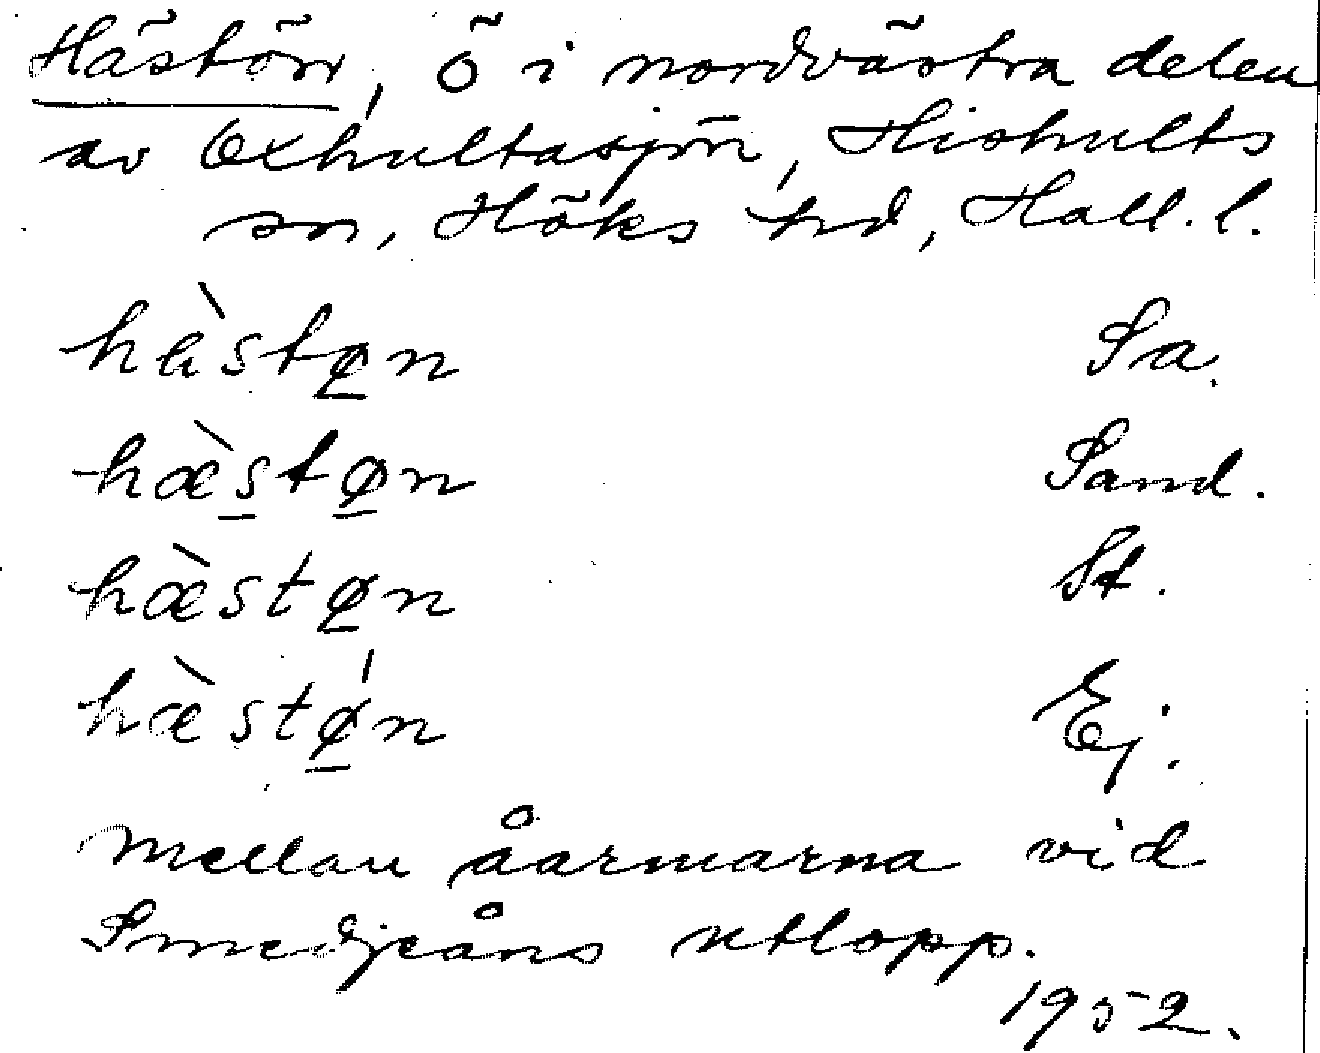 Hästön, ö i nordvästra delen
av Oxhultasjön, Hishults
sn, Höks hd, Hall. l.
hàstø̱n Sa.
hæ̀s̱tø̱n Sand.
hæ̀stø̱n St.
hæ̀stǿ̱n Ej.
Mellan åarmarna vid
Smedjeåns utlopp.
1952.